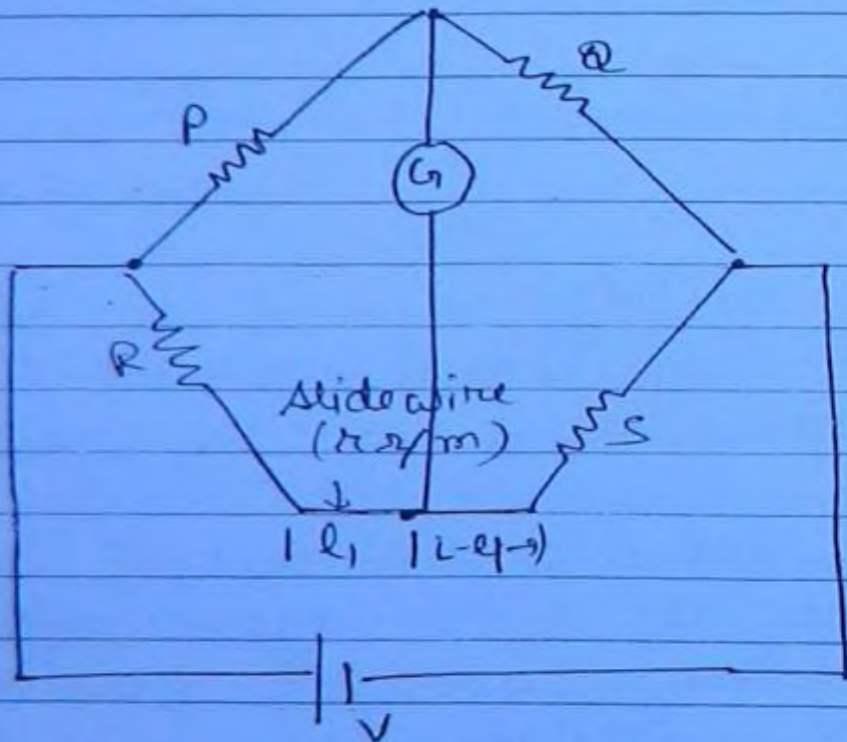 P
Q
G
R
Slide wire
(r Ω/m)
S
l₁ L-l₁
V